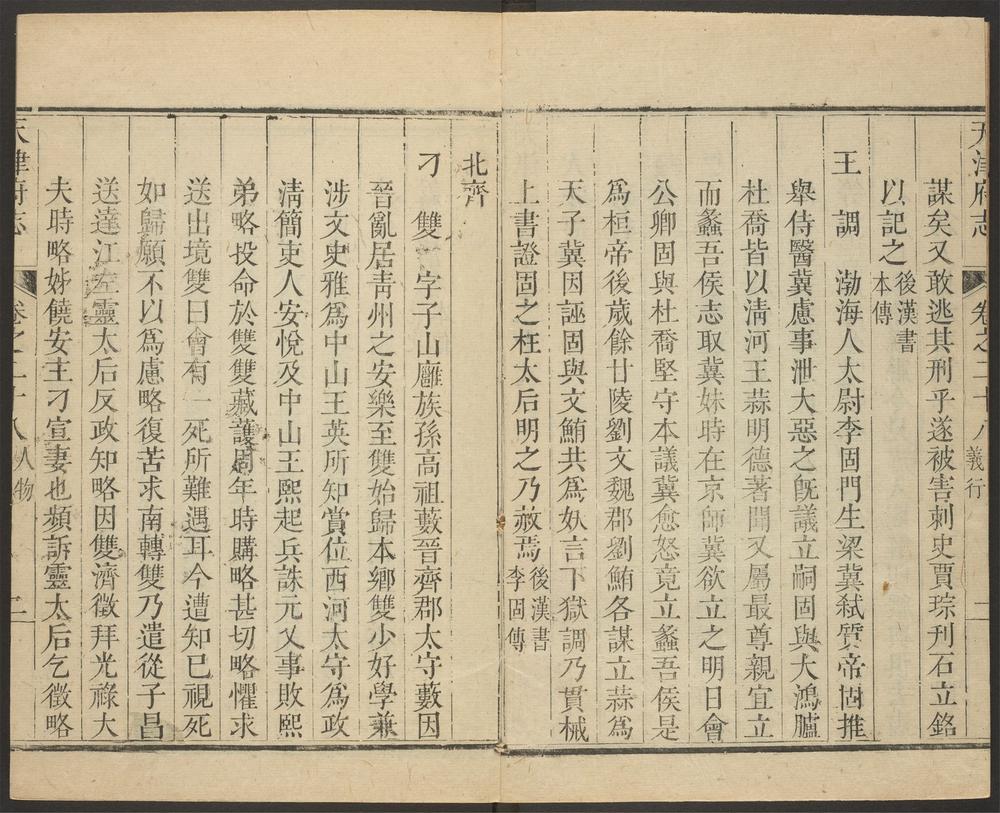 天津府志 卷之二十八 義行 一
謀矣又敢逃其刑乎遂被害刺史賈琮刊石立銘
以記之後漢書本傳
王 調 渤海人太尉李固門生梁冀弒質帝固推
舉侍醫冀慮事泄大惡之旣議立嗣固與大鴻臚
杜喬皆以淸河王蒜明德著聞又屬最尊親宜立
而蠡吾侯志取冀妹時在京師冀欲立之明日會
公卿固與杜喬堅守本議冀愈怒竟立蠡吾侯是
爲桓帝後歲餘甘陵劉文魏郡劉鮪各謀立蒜爲
天子冀因誣固與文鮪共爲妖言下獄調乃貫械
上書證固之枉太后明之乃赦焉後漢書李固傳
北齊
刁 雙 字子山雝族孫高祖藪晉齊郡太守藪因
晉亂居靑州之安樂至雙始歸本鄉雙少好學兼
涉文史雅爲中山王英所知賞位西河太守爲政
淸簡吏人安悅及中山王熙起兵誅元乂事敗熙
弟略投命於雙雙藏護周年時購略甚切略懼求
送出境雙曰會有一死所難遇耳今遭知已視死
如歸願不以爲慮略復苦求南轉雙乃遣從子昌
送達江左靈太后反政知略因雙濟徵拜光祿大
夫時略姊饒安主刁宣妻也頻訴靈太后乞徵略
天津府志 卷之二十八 人物 二